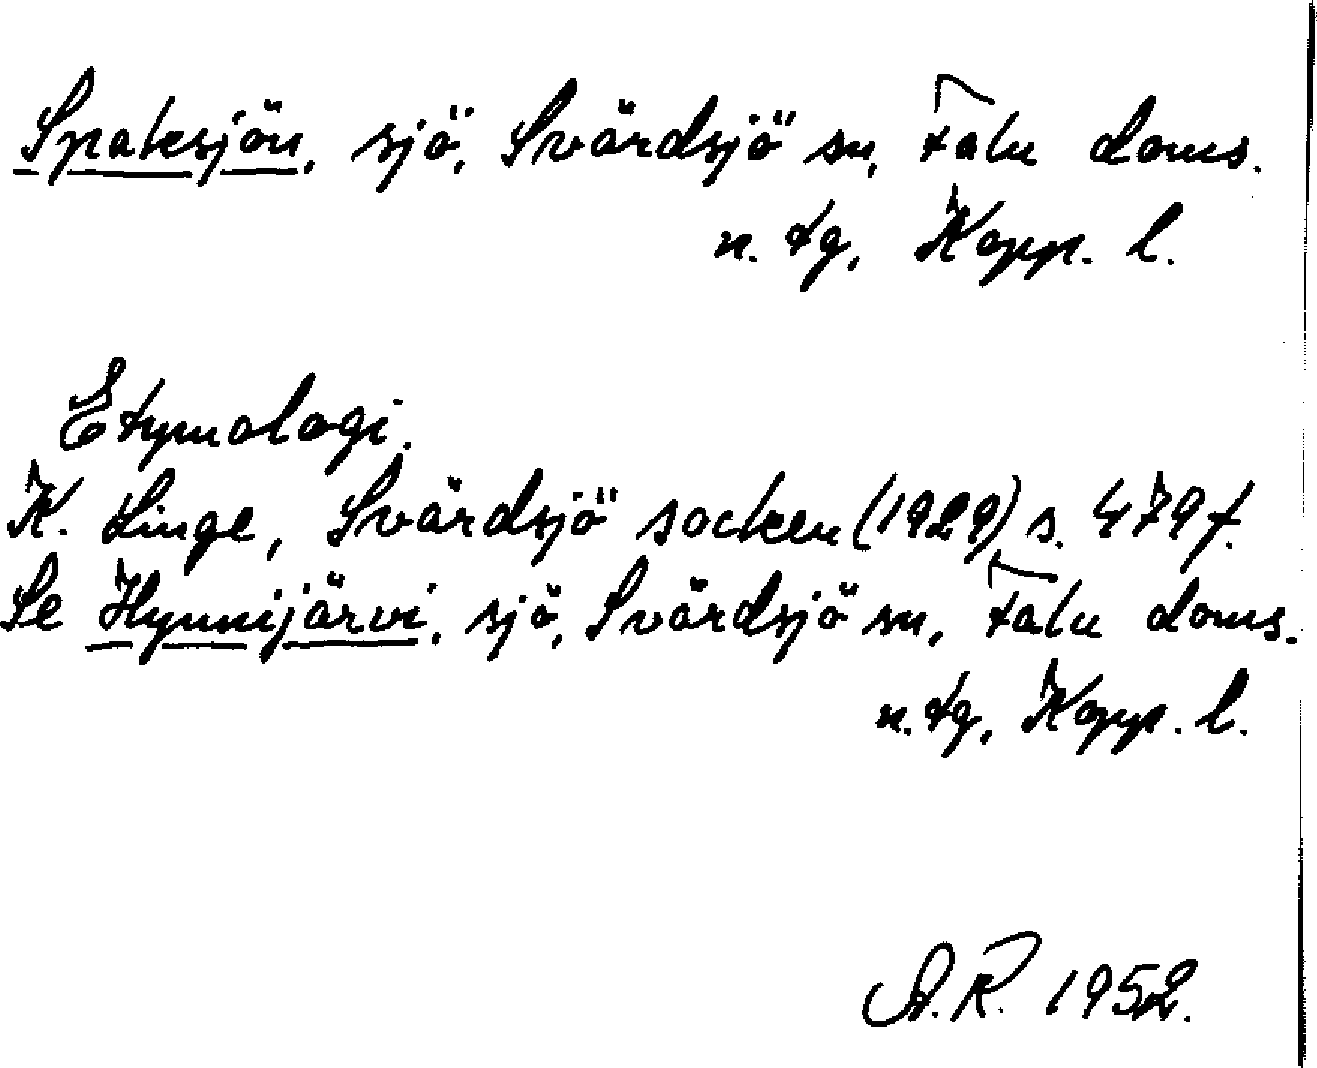 Spaksjön, sjö, Svärdsjö sn, Falu doms.
n. tg, Kopp. l.
Etymologi.
K. Linge, Svärdsjö socken (1929) s. 479 f.
Se Hynnijärvi, sjö, Svärdsjö sn, Falu doms.
n. tg, Kopp. l.
A.R. 1952.